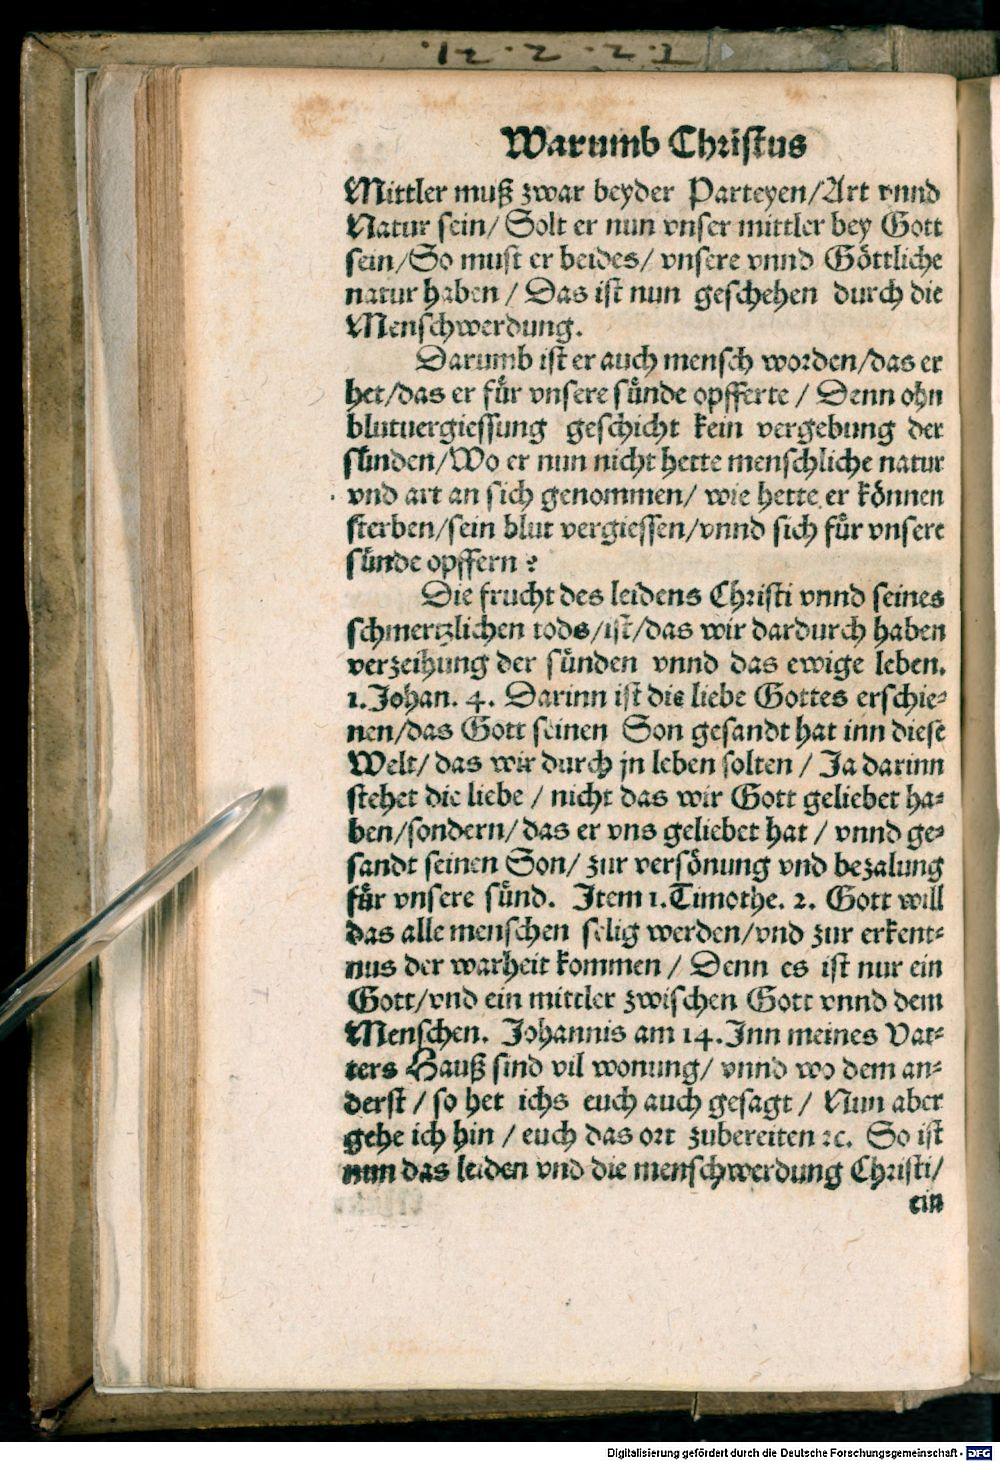 12.2.2.1
Warumb Christus
Mittler muß zwar beyder Parteyen/Art vnnd
Natur sein/ Solt er nun vnser mittler bey Gott
sein/So must er beides/ vnsere vnnd Göttliche
natur haben / Das ist nun geschehen durch die
Menschwerdung.
Darumb ist er auch mensch worden/das er
het/das er für vnsere sünde opfferte / Denn ohn
blutuergiessung geschicht kein vergebung der
sünden/Wo er nun nicht hette menschliche natur
vnd art an sich genommen/ wie hette er können
sterben/sein blut vergiessen/vnnd sich für vnsere
sünde opffern ?
Die frucht des leidens Christi vnnd seines
schmertzlichen tods/ist/das wir dardurch haben
verzeihung der sünden vnnd das ewige leben.
1. Johan. 4. Darinn ist die liebe Gottes erschie-
nen/das Gott seinen Son gesandt hat inn diese
Welt/ das wir durch jn leben solten / Ja darinn
stehet die liebe / nicht das wir Gott geliebet ha-
ben/sondern/das er vns geliebet hat / vnnd ge-
sandt seinen Son/ zur versönung vnd bezalung
für vnsere sünd. Item 1. Timothe. 2. Gott will
das alle menschen selig werden/vnd zur erkent-
nus der warheit kommen / Denn es ist nur ein
Gott/vnd ein mittler zwischen Gott vnnd dem
Menschen. Johannis am 14. Inn meines Vat-
ters Hauß sind vil wonung/ vnnd wo dem an-
derst / so het ichs euch auch gesagt / Nun aber
gehe ich hin / euch das ort zubereiten ꝛc. So ist
nun das leiden vnd die menschwerdung Christi/
ein
Digitalisierung gefördert durch die Deutsche Forschungsgemeinschaft - DFG